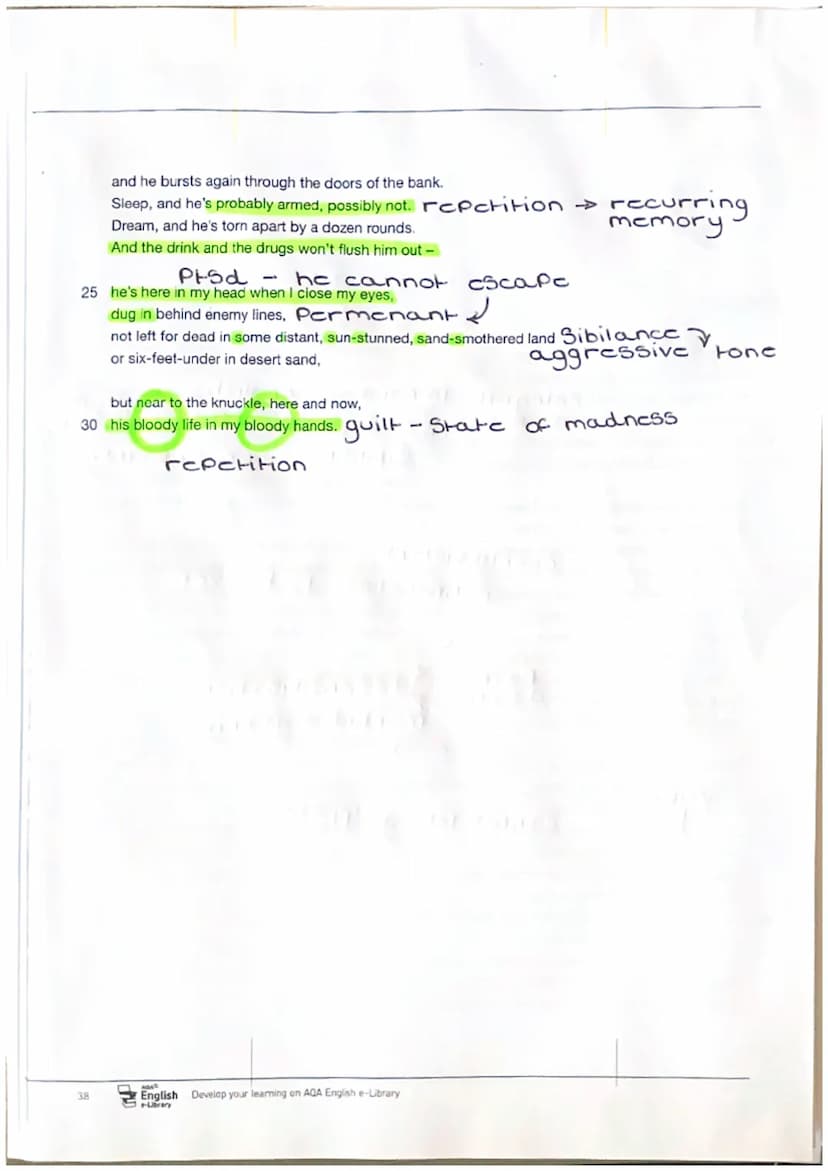 and he bursts again through the doors of the bank.
Sleep, and he's probably armed, possibly not. repetition → recurring
memory
Dream, and he's torn apart by a dozen rounds.
And the drink and the drugs won't flush him out –
Ptsd - he cannot escape
25 he's here in my head when I close my eyes,
dug in behind enemy lines, Permenant
not left for dead in some distant, sun-stunned, sand-smothered land Sibilance
aggressive tone
or six-feet-under in desert sand,
but near to the knuckle, here and now,
30 his bloody life in my bloody hands. guilt - State of madness
repetition
38 AQA English e-Library Develop your learning on AQA English e-Library